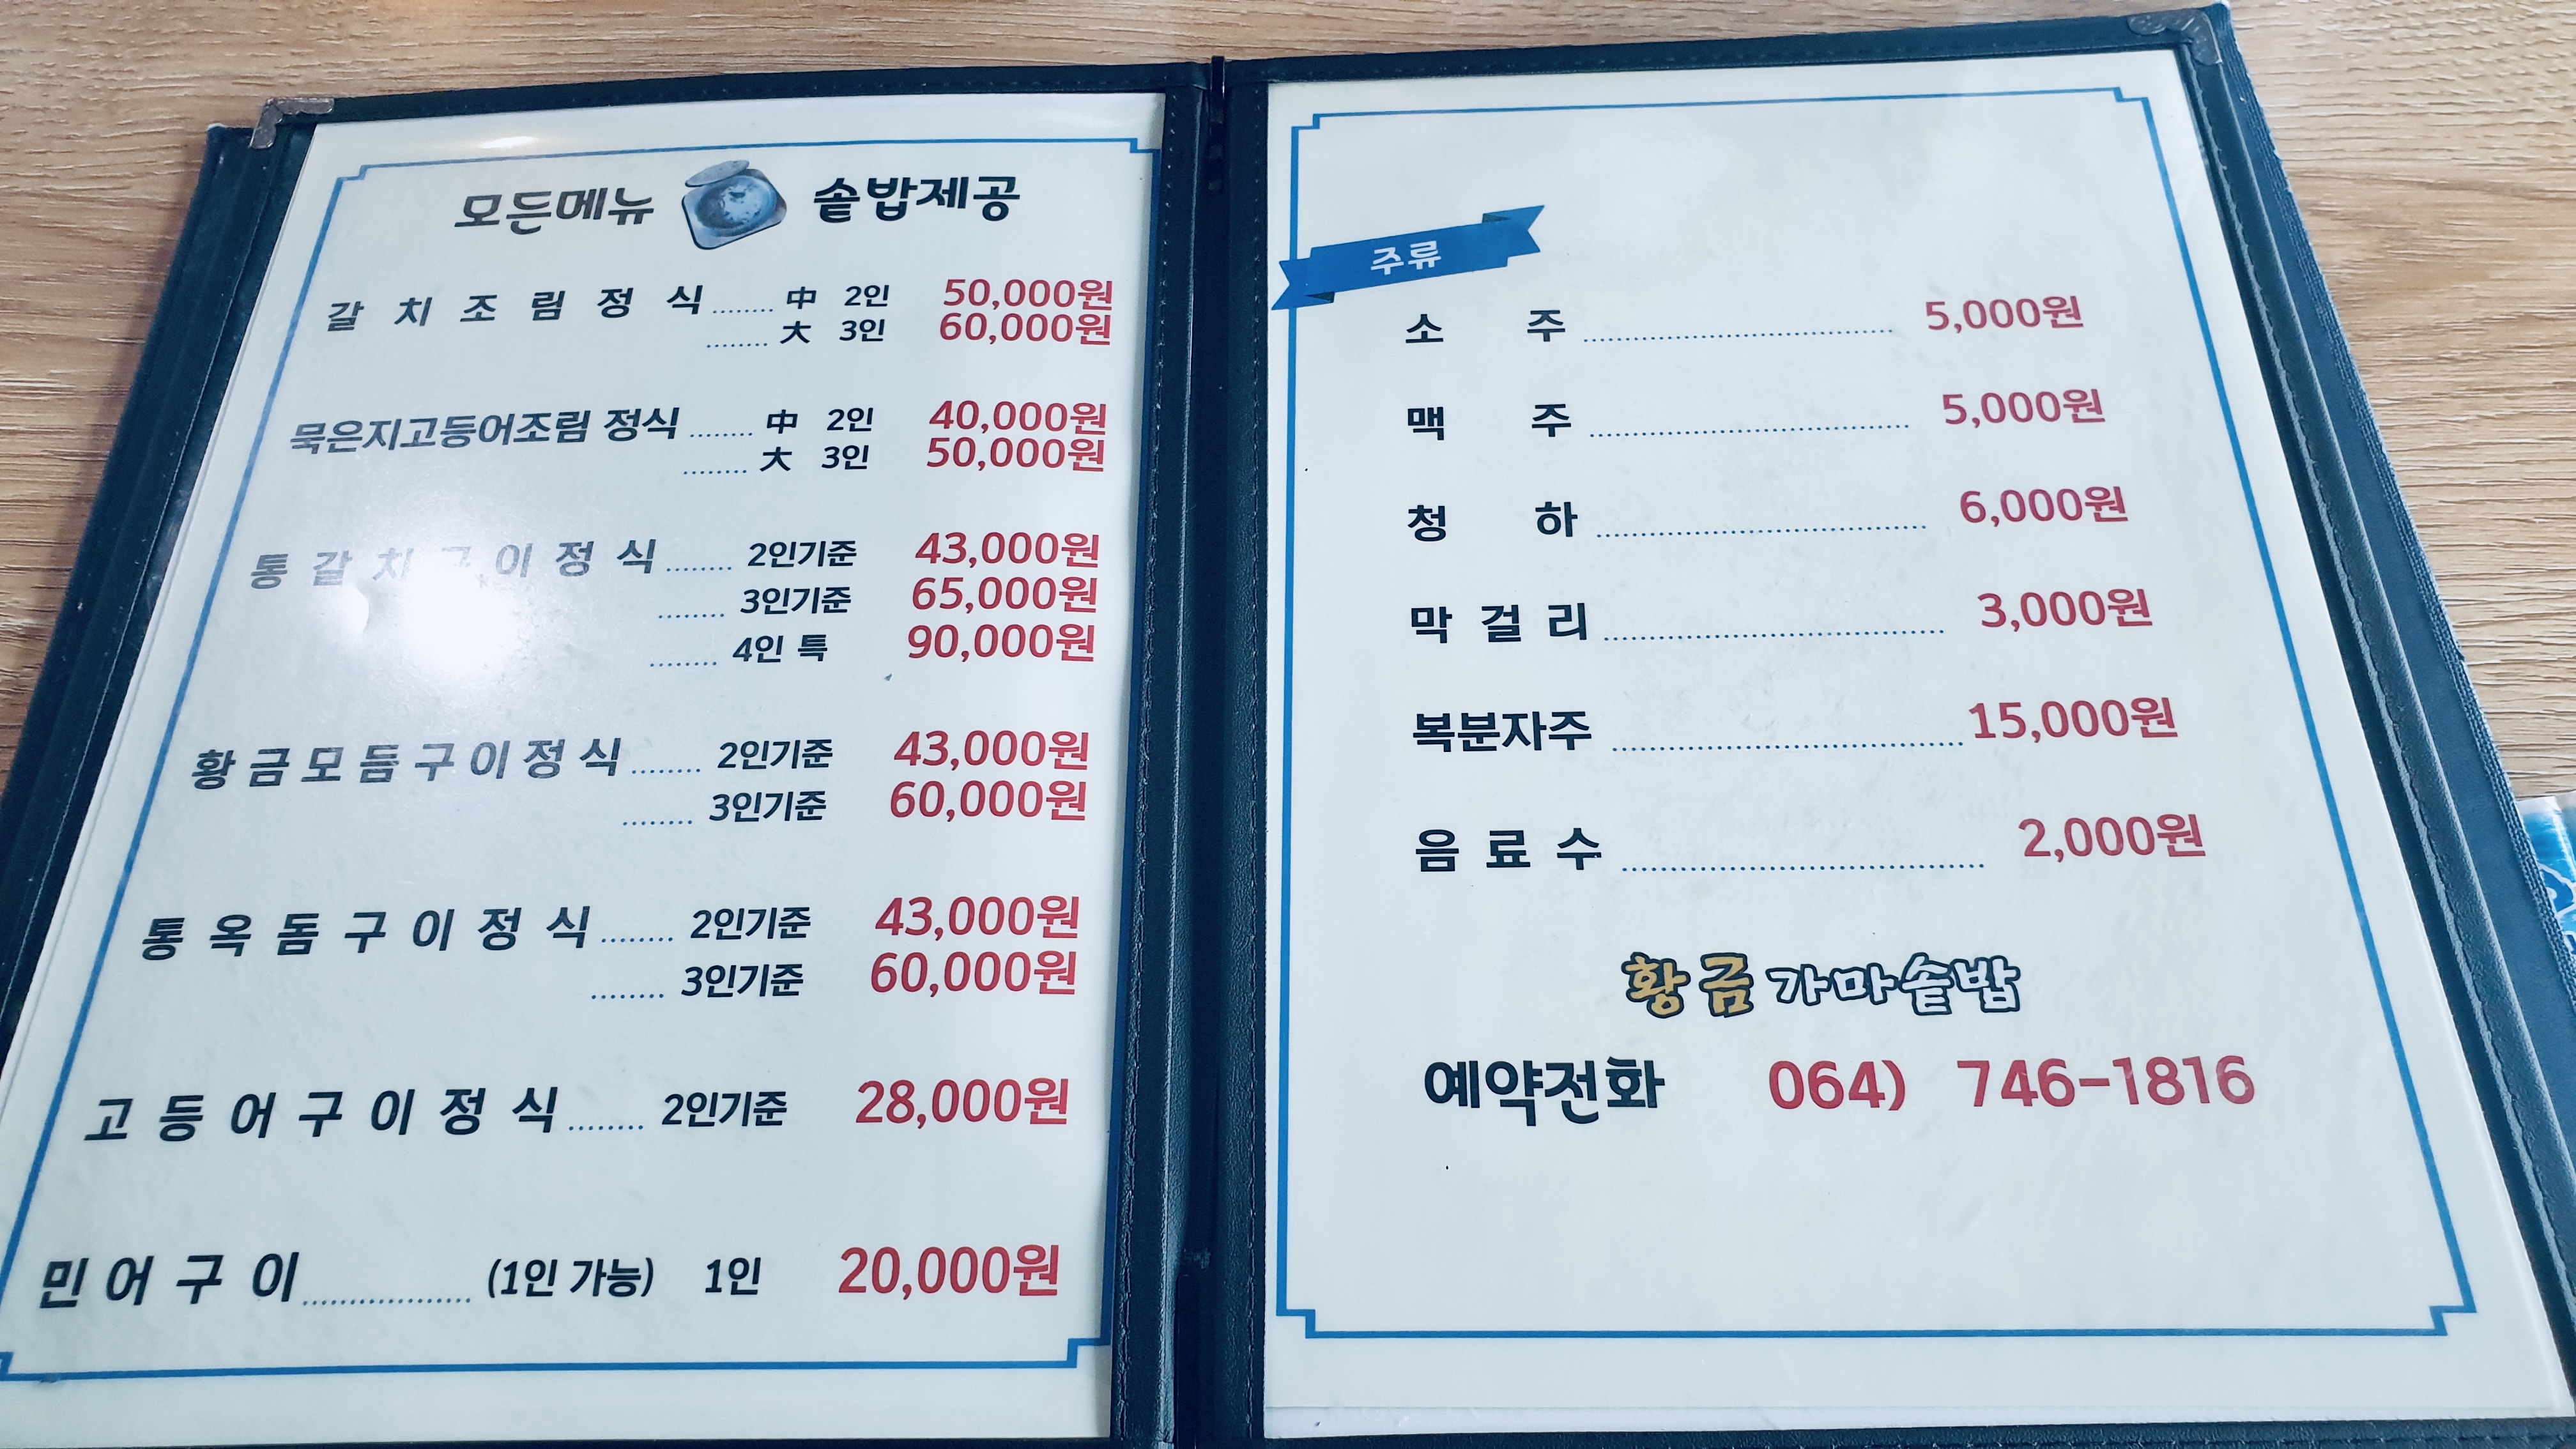 모든메뉴 솥밥제공
갈치조림정식........ 中 2인 50,000원
........ 大 3인 60,000원
묵은지고등어조림 정식........ 中 2인 40,000원
........ 大 3인 50,000원
통갈치구이정식........ 2인기준 43,000원
........ 3인기준 65,000원
........ 4인 특 90,000원
황금모듬구이정식........ 2인기준 43,000원
........ 3인기준 60,000원
통옥돔구이정식........ 2인기준 43,000원
........ 3인기준 60,000원
고등어구이정식........ 2인기준 28,000원
민어구이.................. (1인 가능) 1인 20,000원
주류
소주 5,000원
맥주 5,000원
청하 6,000원
막걸리 3,000원
복분자주 15,000원
음료수 2,000원
황금가마솥밥
예약전화 064) 746-1816